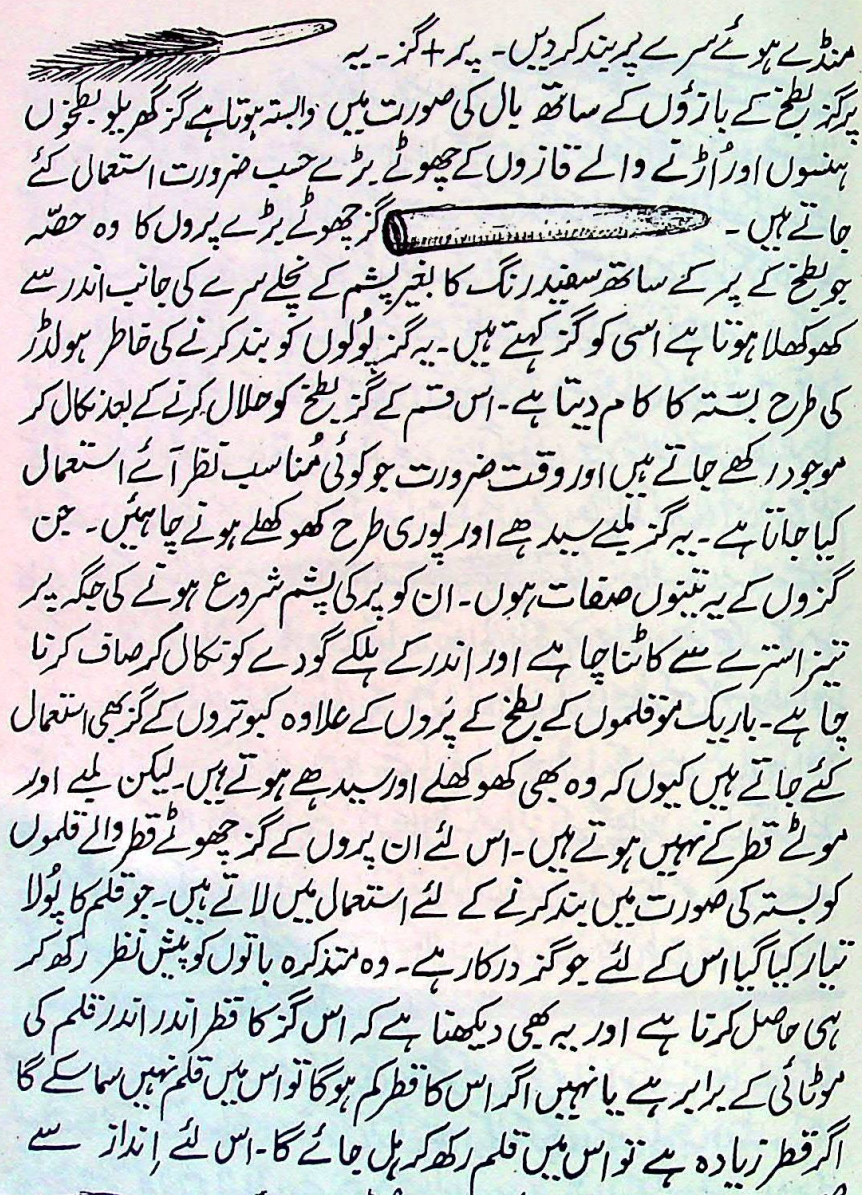 منڈے ہوئے سرے پر بند کر دیں۔ پر + گز۔ یہ
پر گز بطخ کے بازوؤں کے ساتھ بال کی صورت میں وابستہ ہوتا ہے گز گھریلو بطخوں
ہنسوں اور اُڑنے والے قازوں کے چھوٹے بڑے حسب ضرورت استعمال کئے
جاتے ہیں۔ گز چھوٹے بڑے پروں کا وہ حصّہ
جو بطخ کے پر کے ساتھ سفید رنگ کا بغیر پشم کے نچلے سرے کی جانب اندر سے
کھوکھلا ہوتا ہے اسی کو گز کہتے ہیں۔ یہ گز پُولوں کو بند کرنے کی خاطر ہولڈر
کی طرح بستہ کا کام دیتا ہے۔ اس قسم کے گز بطخ کو حلال کرنے کے بعد نکال کر
موجود رکھے جاتے ہیں اور وقت ضرورت جو کوئی مُناسب نظر آئے استعمال
کیا جاتا ہے۔ یہ گز لمبے سیدھے اور پوری طرح کھوکھلے ہونے چاہئیں۔ جن
گزوں کے یہ تینوں صفات ہوں۔ ان کو پر کی پشم شروع ہونے کی جگہ پر
تیز استرے سے کاٹنا چاہے اور اندر کے ہلکے گودے کو نکال کر صاف کرنا
چاہے۔ باریک موقلموں کے بطخ کے پَروں کے علاوہ کبوتروں کے گز بھی استعمال
کئے جاتے ہیں کیوں کہ وہ بھی کھوکھلے اور سیدھے ہوتے ہیں۔ لیکن لمبے اور
موٹے قطر کے نہیں ہوتے ہیں۔ اس لئے ان پروں کے گز چھوٹے قطر والے قلموں
کو بستہ کی صورت میں بند کرنے کے لئے استعمال میں لاتے ہیں۔ جو قلم کا پُولا
تیار کیا گیا اس کے لئے جو گز درکار ہے۔ وہ متذکرہ باتوں کو پیش نظر رکھ کر
ہی حاصل کرنا ہے اور یہ بھی دیکھنا ہے کہ اس گز کا قطر اندر اندر قلم کی
موٹائی کے برابر ہے یا نہیں اگر اس کا قطر کم ہوگا تو اس میں قلم نہیں سما سکے گا
اگر قطر زیادہ ہے تو اس میں قلم رکھ کر ہل جائے گا۔ اس لئے اِنداز سے